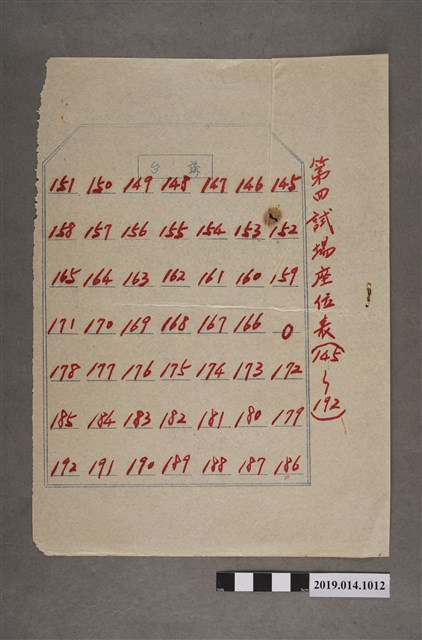 第四試場座位表(145～192)
講台
151 150 149 148 147 146 145
158 157 156 155 154 153 152
165 164 163 162 161 160 159
171 170 169 168 167 166 0
178 177 176 175 174 173 172
185 184 183 182 181 180 179
192 191 190 189 188 187 186
2019.014.1012